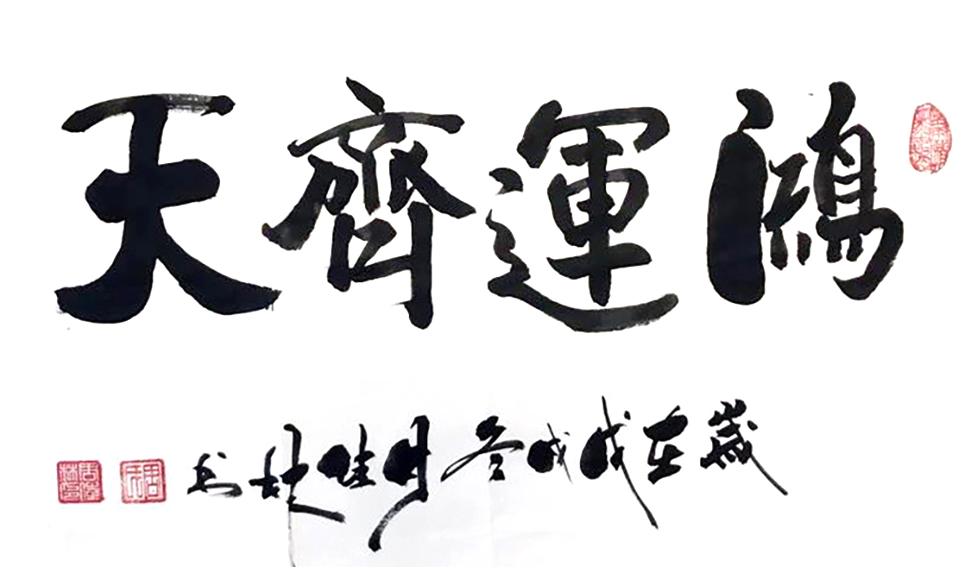 鴻運齊天
歲在戊戌冬月佳书